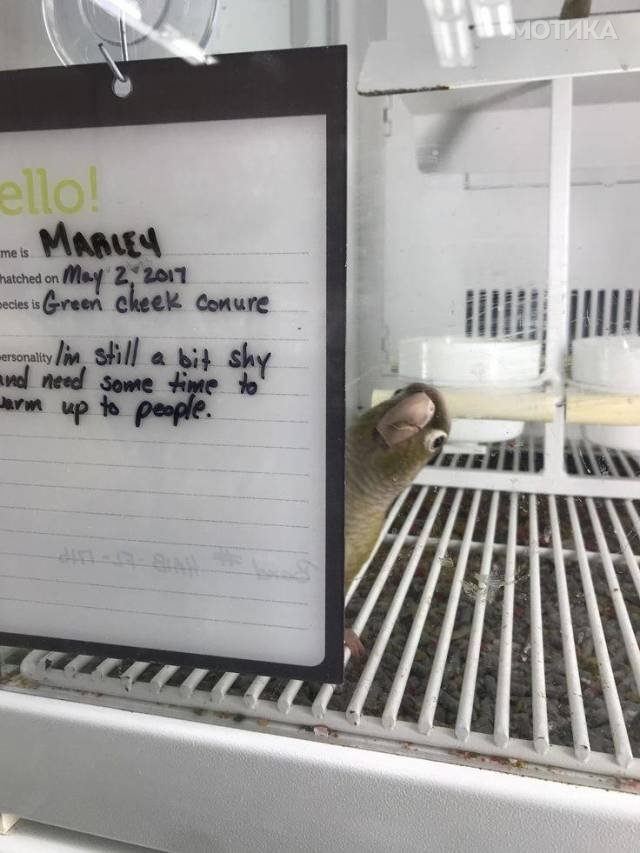 МОТИКА
ello!
me is MARLEY
hatched on May 2, 2017
ecies is Green cheek conure
ersonality I'm still a bit shy
and need some time to
warm up to people.
Band #